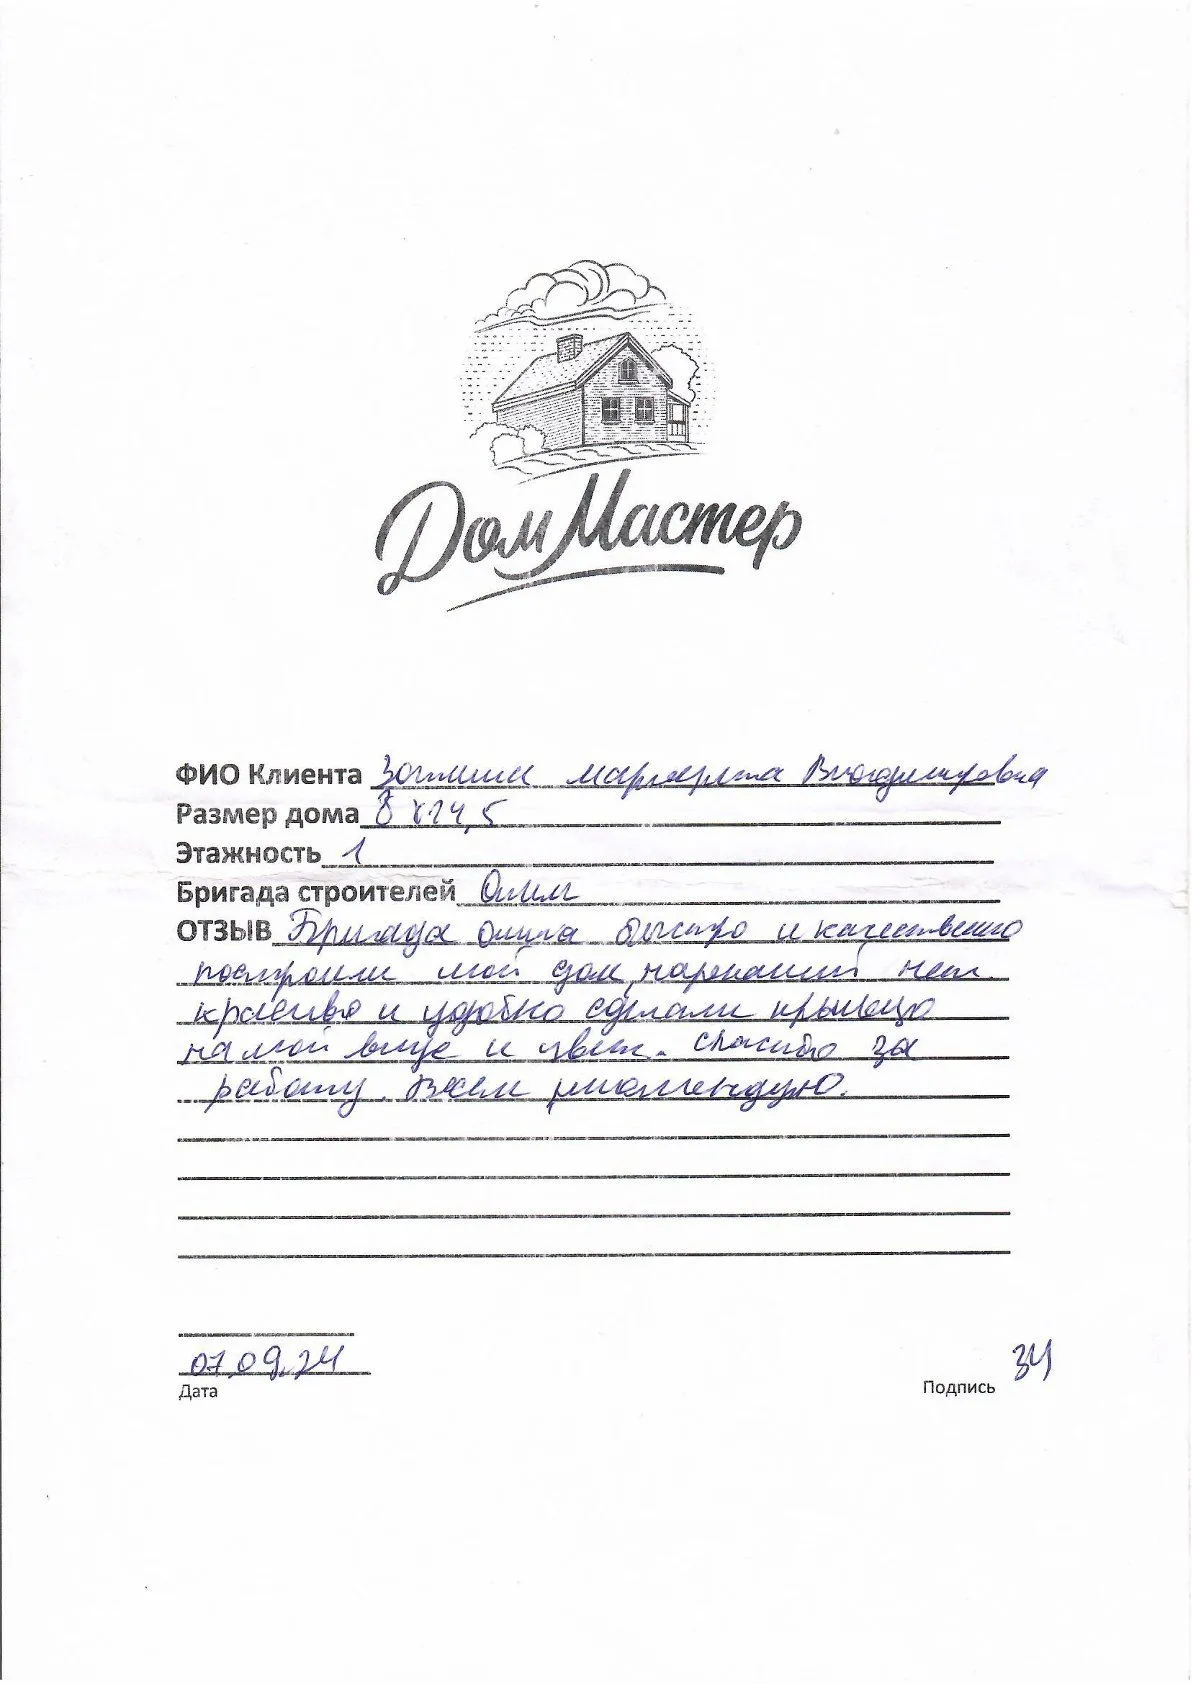 Дом Мастер
ФИО Клиента Маргарита Владимировна
Размер дома 8 х 14,5
Этажность 1
Бригада строителей Олим
ОТЗЫВ Бригада Олима быстро и качественно
построили мой дом, нареканий нет.
красиво и удобно сделали крыльцо
на мой вкус и цвет. спасибо за
работу. Всем рекомендую.
07.09.24
Дата Подпись